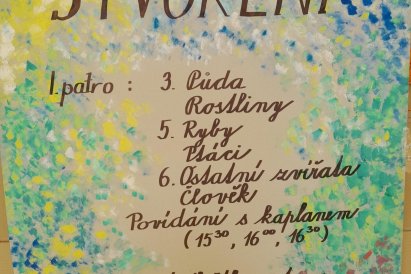 STVOŘENÍ
I. patro : 3. Půda
Rostliny
5. Ryby
Ptáci
6. Ostatní zvířata
Člověk
Povídání s kaplanem
(15³⁰, 16⁰⁰, 16³⁰)